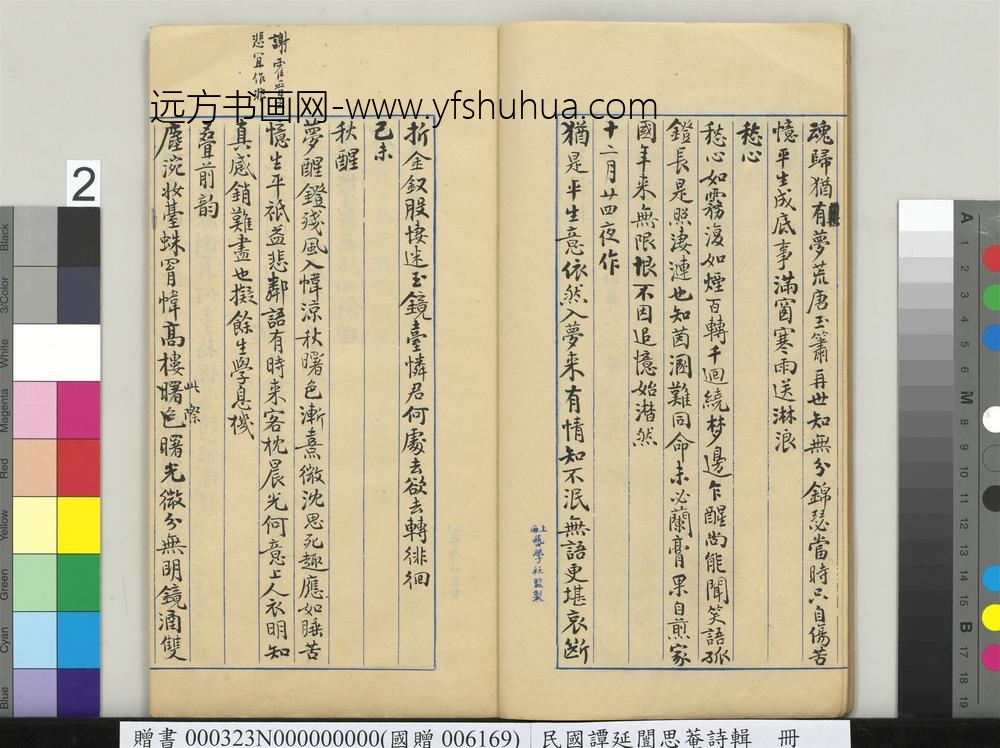 魂歸猶有夢荒唐玉簫再世知無分錦瑟當時只自傷苦
憶平生成底事滿窗寒雨送淋浪
愁心
愁心如霧復如煙百轉千迴繞梦邊乍醒尚能聞笑語孤
鐙長是照淒漣也知茵溷難同命未必蘭膏果自煎家
國年来無限恨不因追憶始潸然
十二月廿四夜作
猶是平生意依然入夢来有情知不泯無語更堪哀斷
上海藝學社監製
折金釵股悽迷玉鏡臺憐君何處去欲去轉徘徊
己未
秋醒
夢醒鐙殘風入幃涼秋曙色漸熹微沈思死趣應如睡苦
憶生平祇益悲鄰語有時来客枕晨光何意上人衣明知
真感銷難盡也擬餘生學息機
叠前韵
塵涴妝臺蛛罥幃高樓曙色曙光微分無明鏡涵雙
此際
謝霍晉
悲宜作
远方书画网-www.yfshuhua.com
2
Black
3/Color
White
Magenta
Red
Yellow
Green
Cyan
Blue
A
1
2
3
4
5
6
M
8
9
10
11
12
13
14
15
B
17
18
19
贈書 000323N000000000(國贈 006169) 民國譚延闓思菴詩輯 冊